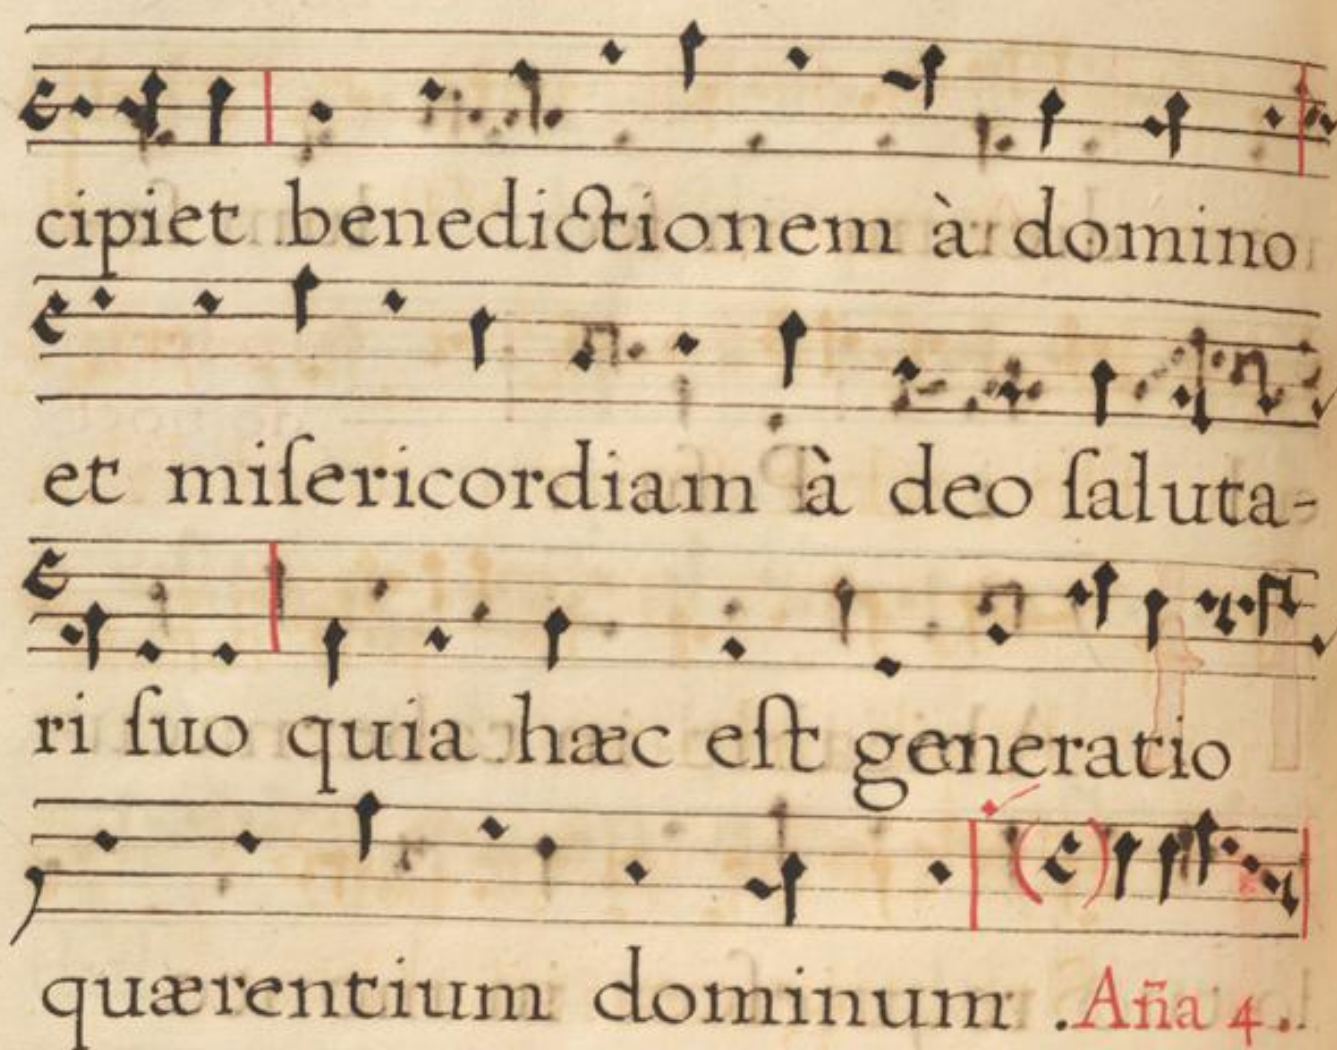 cipiet benedictionem à domino
et miſericordiam à deo ſaluta-
ri ſuo quia hæc eſt generatio
quærentium dominum . Aña 4 .